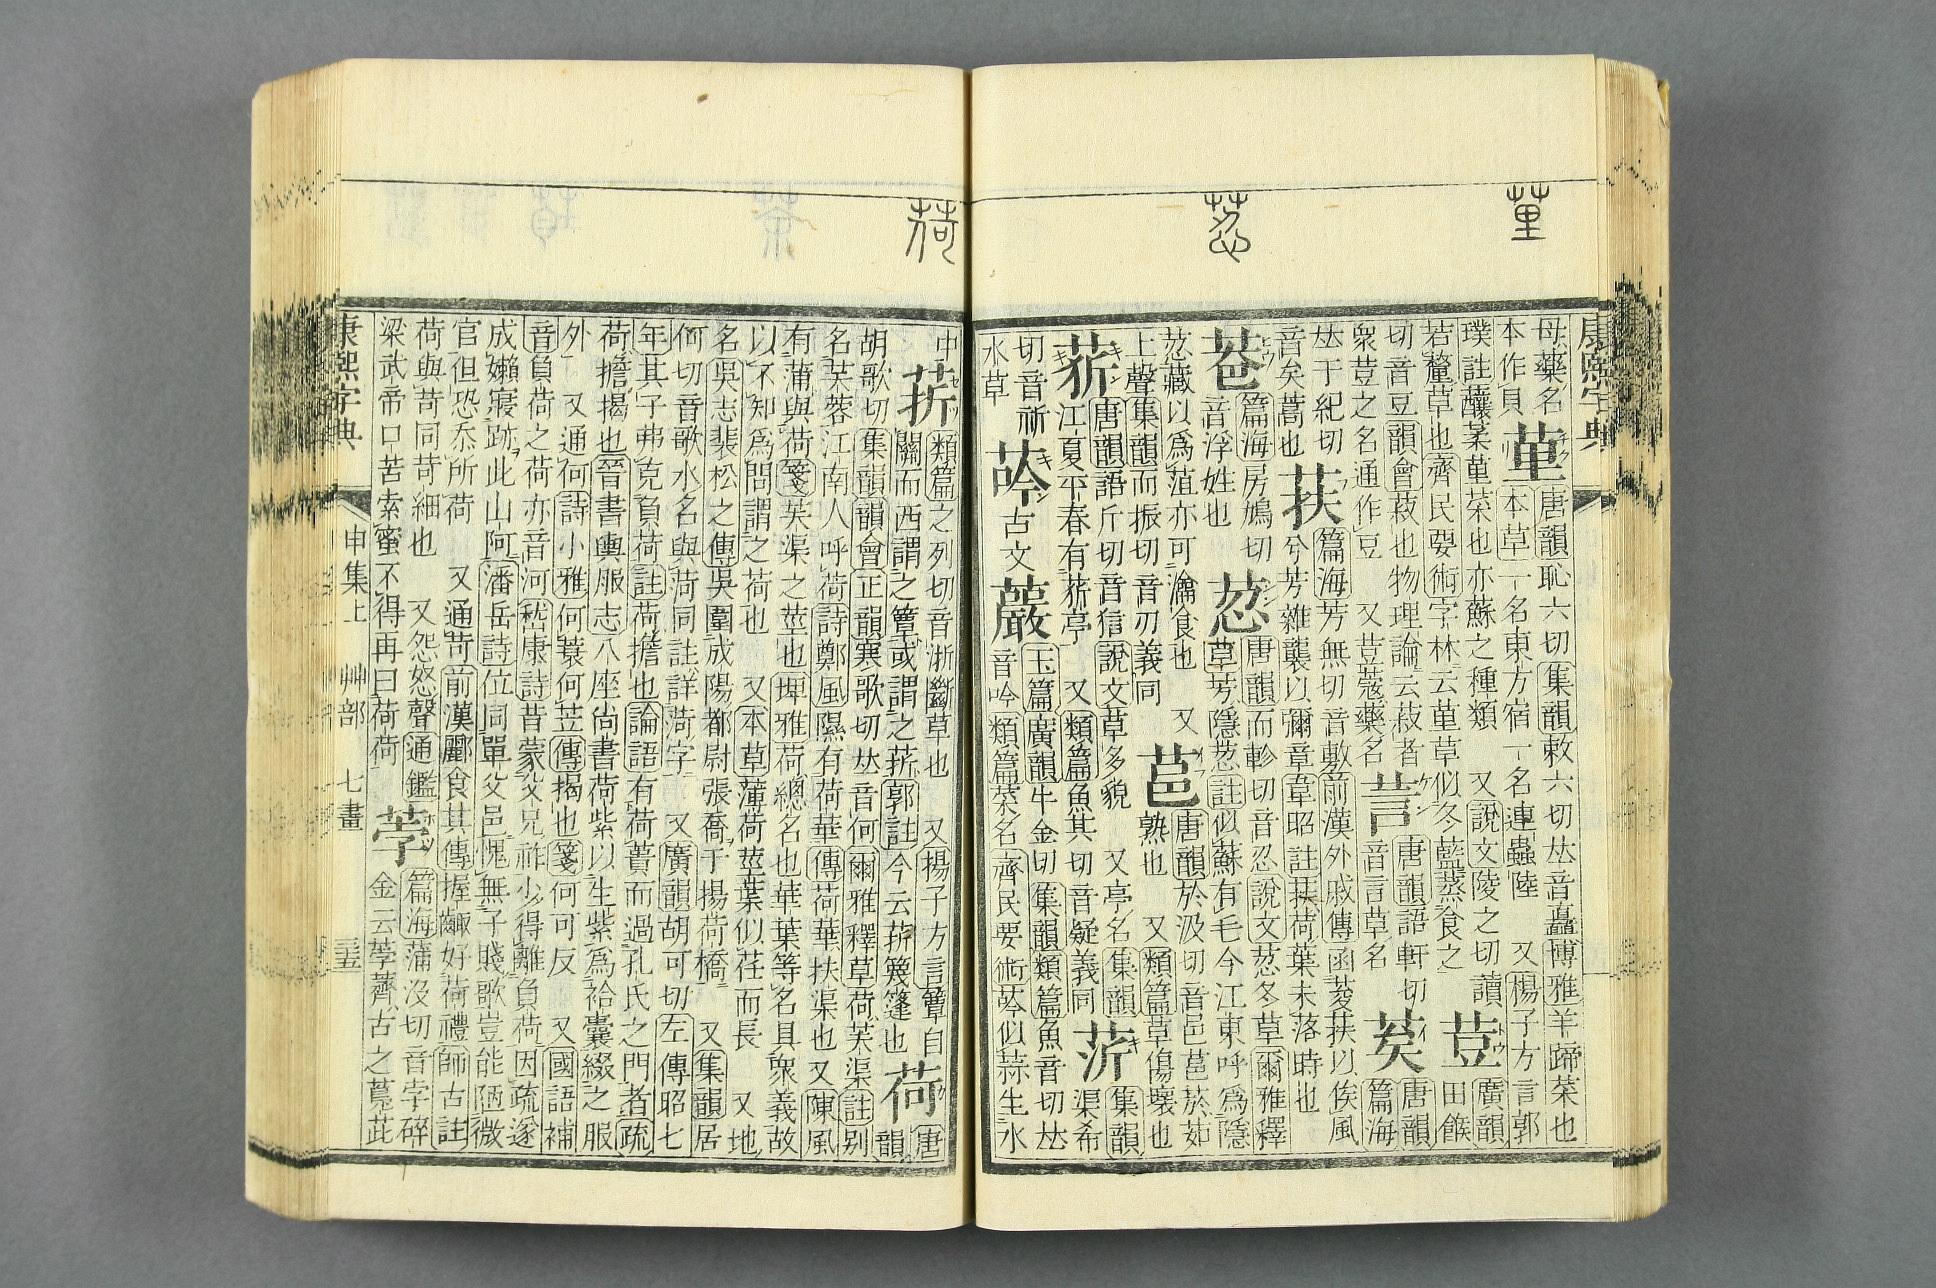 菫
荵
荷
康熙字典
母藥名
本作貝
菫
唐韻恥六切集韻敕六切𠀤音矗博雅羊蹄菜也
本草一名東方宿一名連蟲陸 又揚子方言郭
璞註蘸菜菫菜也亦蘇之種類 又說文陵之切讀
若釐草也齊民要術字林云菫草似冬藍蒸食之
荳
廣韻田餱
切音豆韻會菽也物理論云菽者
衆荳之名通作豆 又荳蔻藥名
䓂
唐韻語軒切
音言草名
唐韻
𠀤于紀切
音矣蒿也
荴
篇海芳無切音敷前漢外戚傳函菱荴以俟風
兮芳雜襲以彌章韋昭註荴荷葉未落時也
篇海房鳩切
音浮姓也
荵
唐韻而軫切音忍說文荵冬草爾雅釋
草芳隱荵註似蘇有毛今江東呼爲隱
荵藏以爲菹亦可瀹食也 又
上聲集韻而振切音刃義同
唐韻於汲切音邑菸茹
熟也 又類篇草傷壞也
唐韻語斤切音狺說文草多貌 又亭名
江夏平春有
亭 又類篇魚其切音疑義同
集韻
渠希
切音祈
水草
荶
古文
玉篇廣韻牛金切集韻類篇魚音切𠀤
音吟類篇菜名齊民要術荶似蒜生水
中
類篇之列切音浙斷草也 又揚子方言簟自
關而西謂之簟或謂之
郭註今云
篾篷也
荷
唐韻
胡歌切集韻韻會正韻寒歌切𠀤音何爾雅釋草荷芙渠註別
名芙蓉江南人呼荷詩鄭風隰有荷華傳荷華扶渠也 又陳風
有蒲與荷箋芙渠之莖也埤雅荷總名也華葉等名具衆義故
以不知爲問謂之荷也 又本草薄荷莖葉似荏而長 又地
名吳志裴松之傳吳圍成陽都尉張喬于揚荷橋 又集韻居
何切音歌水名與菏同註詳菏字 又廣韻胡可切左傳昭七
年其子弗克負荷註荷擔也論語有荷蕢而過孔氏之門者疏
荷擔揭也晉書輿服志八座尚書荷紫以生紫爲袷囊綴之服
外 又通何詩小雅何蓑何笠傳揭也箋何可反 又國語補
音負荷之荷亦音河嵇康詩昔蒙父兄祚少得離負荷因疏遂
成嬾寢跡此山阿潘岳詩位同單父邑愧無子賤歌豈能陋微
官但恐忝所荷 又通苛前漢酈食其傳握齱好荷禮師古註
荷與苛同苛細也 又怨怒聲通鑑
梁武帝口苦索蜜不得再曰荷荷
荸
篇海蒲沒切音孛碎
金云荸薺古之蒐茈
康熙字典
申集上
艸部
七畫